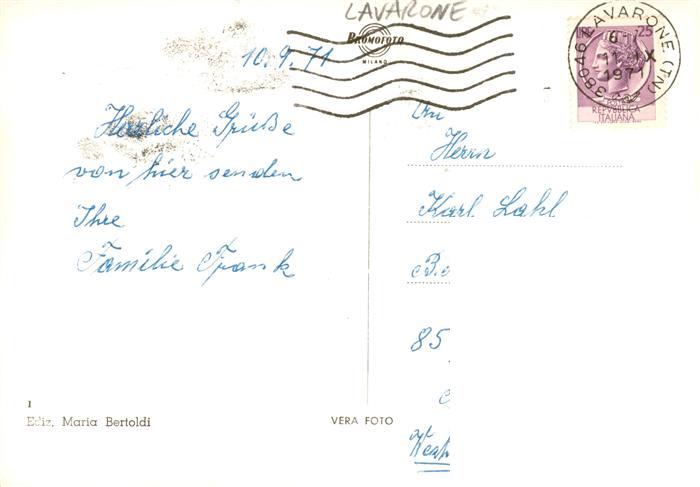 LAVARONE
BROMOFOTO
MILANO
10.9.71
Herzliche Grüße
von hier senden
Ihre
Familie Frank
An
Herrn
Karl Lahl
85
25
REPVBBLICA
ITALIANA
38046 LAVARONE (TN)
11 IX
1971
1
Ediz. Maria Bertoldi
VERA FOTO